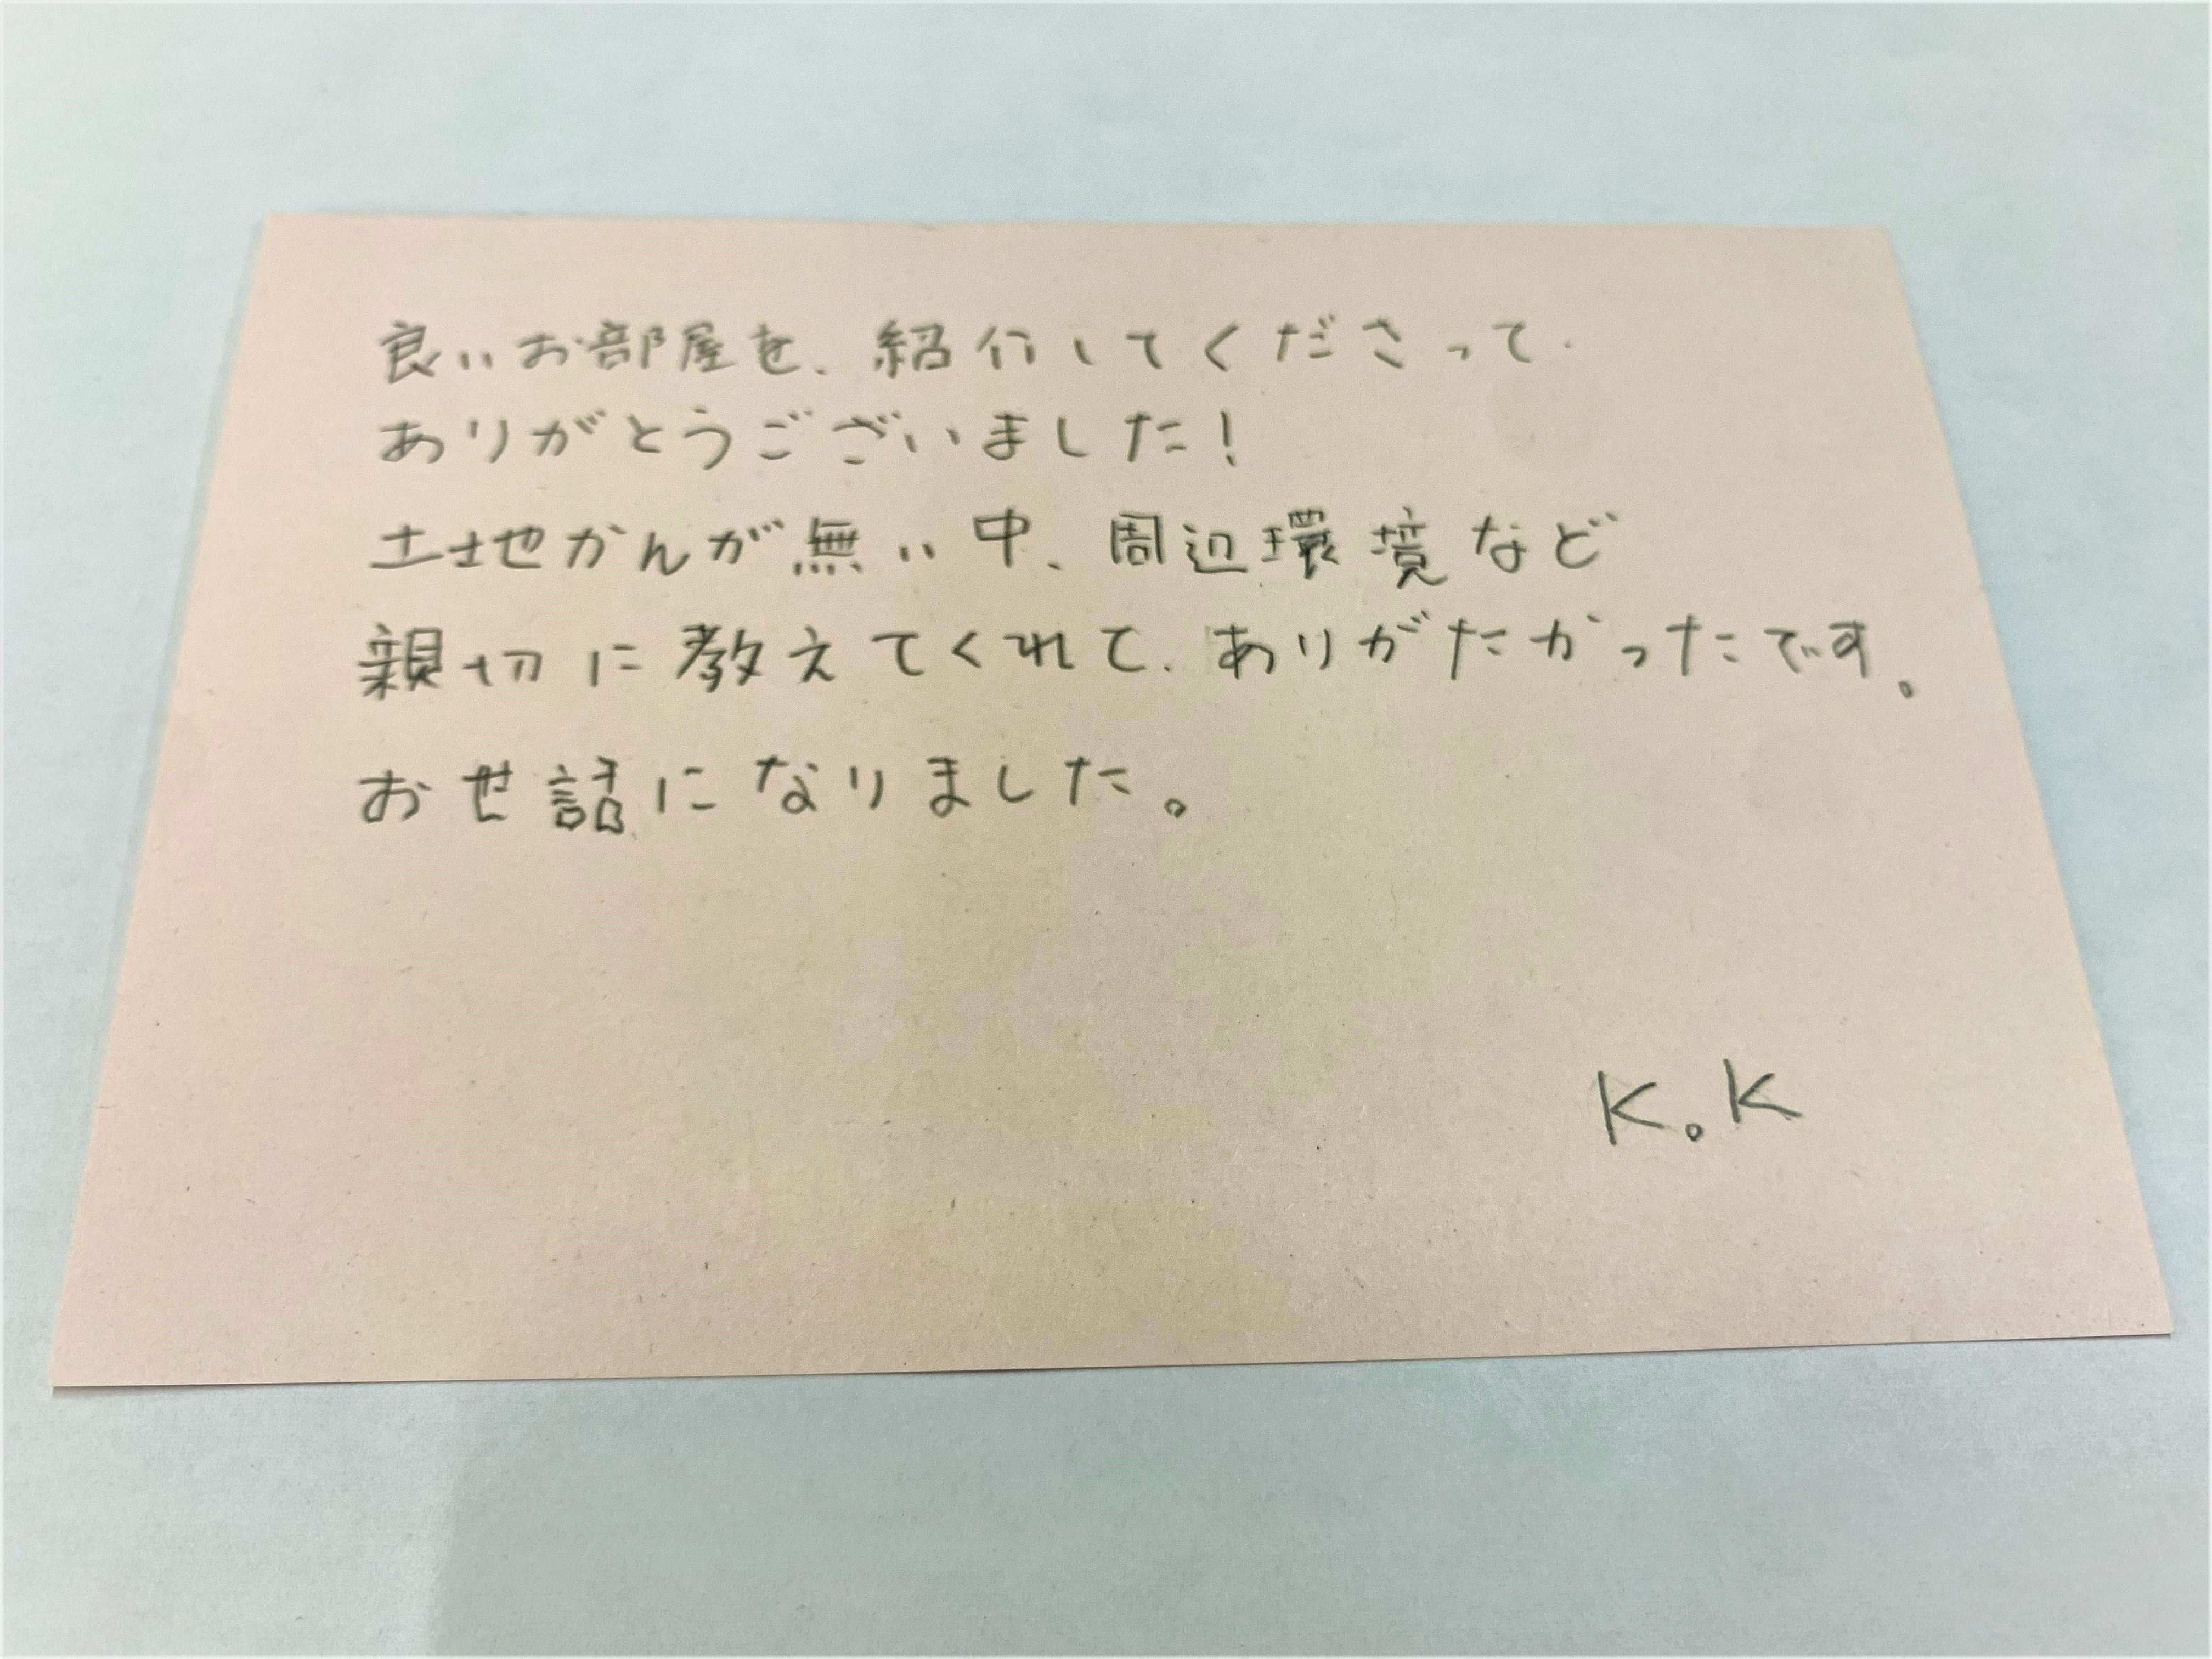 良いお部屋を、紹介してくださって、
ありがとうございました!
土地かんが無い中、周辺環境など
親切に教えてくれて、ありがたかったです。
お世話になりました。
K.K